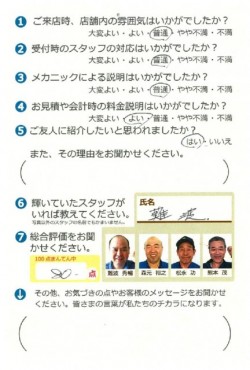 1 ご来店時、店舗内の雰囲気はいかがでしたか?
大変よい・よい・普通・やや不満・不満
2 受付時のスタッフの対応はいかがでしたか?
大変よい・よい・普通・やや不満・不満
3 メカニックによる説明はいかがでしたか?
大変よい・よい・普通・やや不満・不満
4 お見積や会計時の料金説明はいかがでしたか?
大変よい・よい・普通・やや不満・不満
5 ご友人に紹介したいと思われましたか?
はい・いいえ
また、その理由をお聞かせください。
6 輝いていたスタッフが
いれば教えてください。
写真以外のスタッフの名前でもかまいません。
氏名
7 総合評価をお聞
かせください。
100点まんてん中
80 点
森元 裕之
松永 功
熊本 茂
その他、お気づきの点やお客様のメッセージをお聞かせ
ください。皆さまの言葉が私たちのチカラになります。